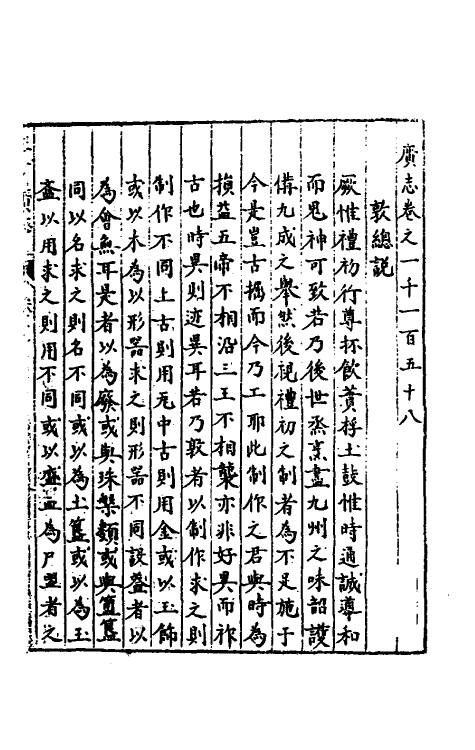 廣志卷之一千一百五十八
敦總說
厥惟禮初行尊抔飲蕢桴土鼓惟時通誠導和
而鬼神可致若乃後世烝烹盡九州之味韶護
備九成之舉然後視禮初之制者為不足施于
今是豈古撝而今乃工耶此制作之君與時為
損益五帝不相沿三王不相襲亦非好異而祚
古也時異則迹異耳若乃敦者以制作求之則
制作不同上古則用瓦中古則用金或以玉飾
或以木為以形器求之則形器不同設蓋者以
為會無耳是者以為廢或與珠槃類或與簠簋
同以名求之則名不同或以為土簋或以為玉
齍以用求之則用不同或以盛血為尸盟者之